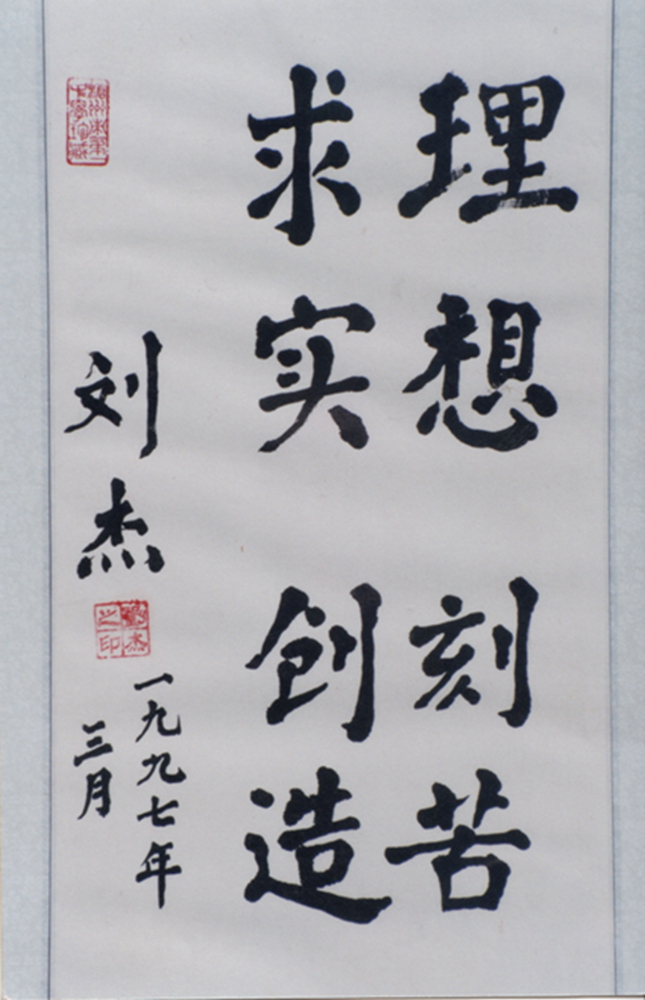 理想刻苦
求实创造
刘杰
刘杰之印
一九九七年
三月